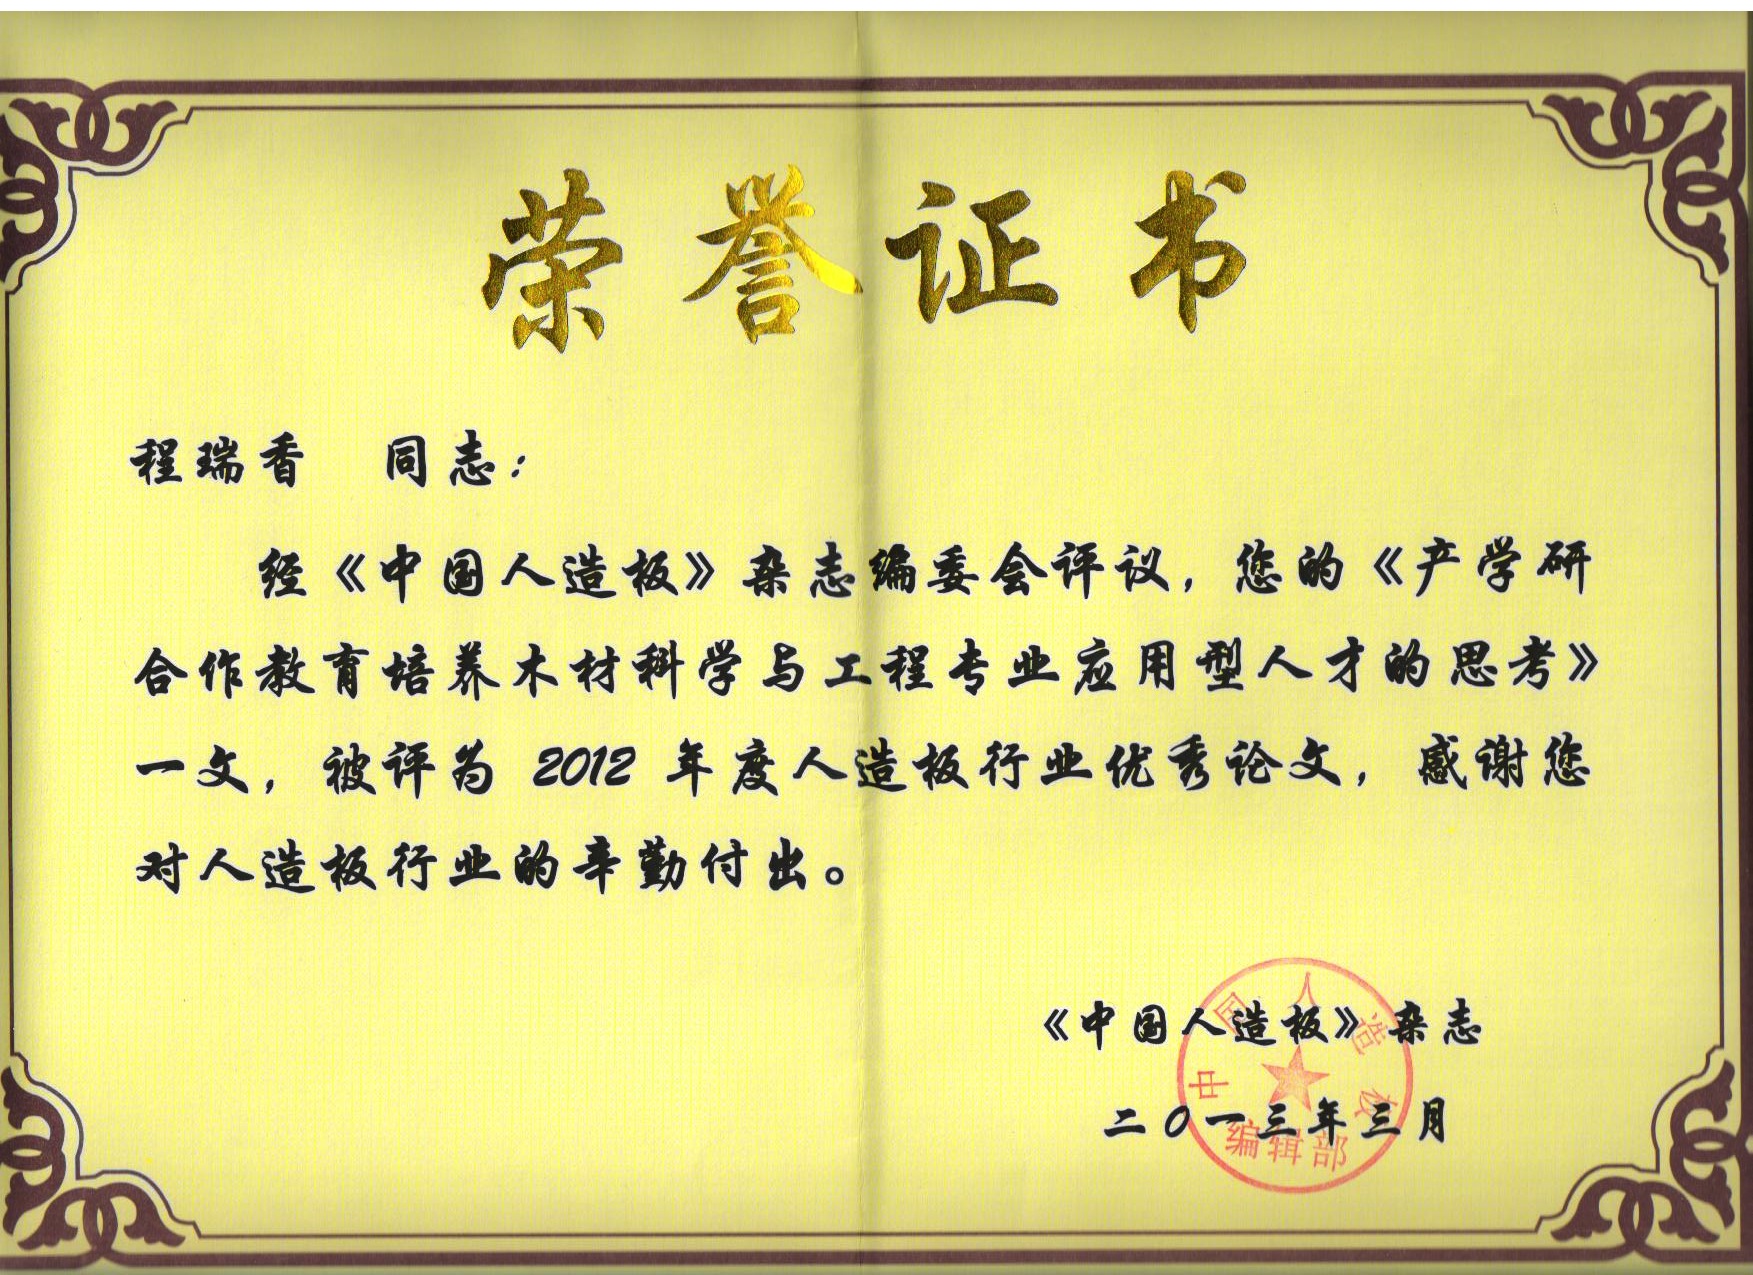 荣誉证书
程瑞香 同志：
经《中国人造板》杂志编委会评议，您的《产学研
合作教育培养木材科学与工程专业应用型人才的思考》
一文，被评为 2012 年度人造板行业优秀论文，感谢您
对人造板行业的辛勤付出。
《中国人造板》杂志
二〇一三年三月
中国人造板
编辑部